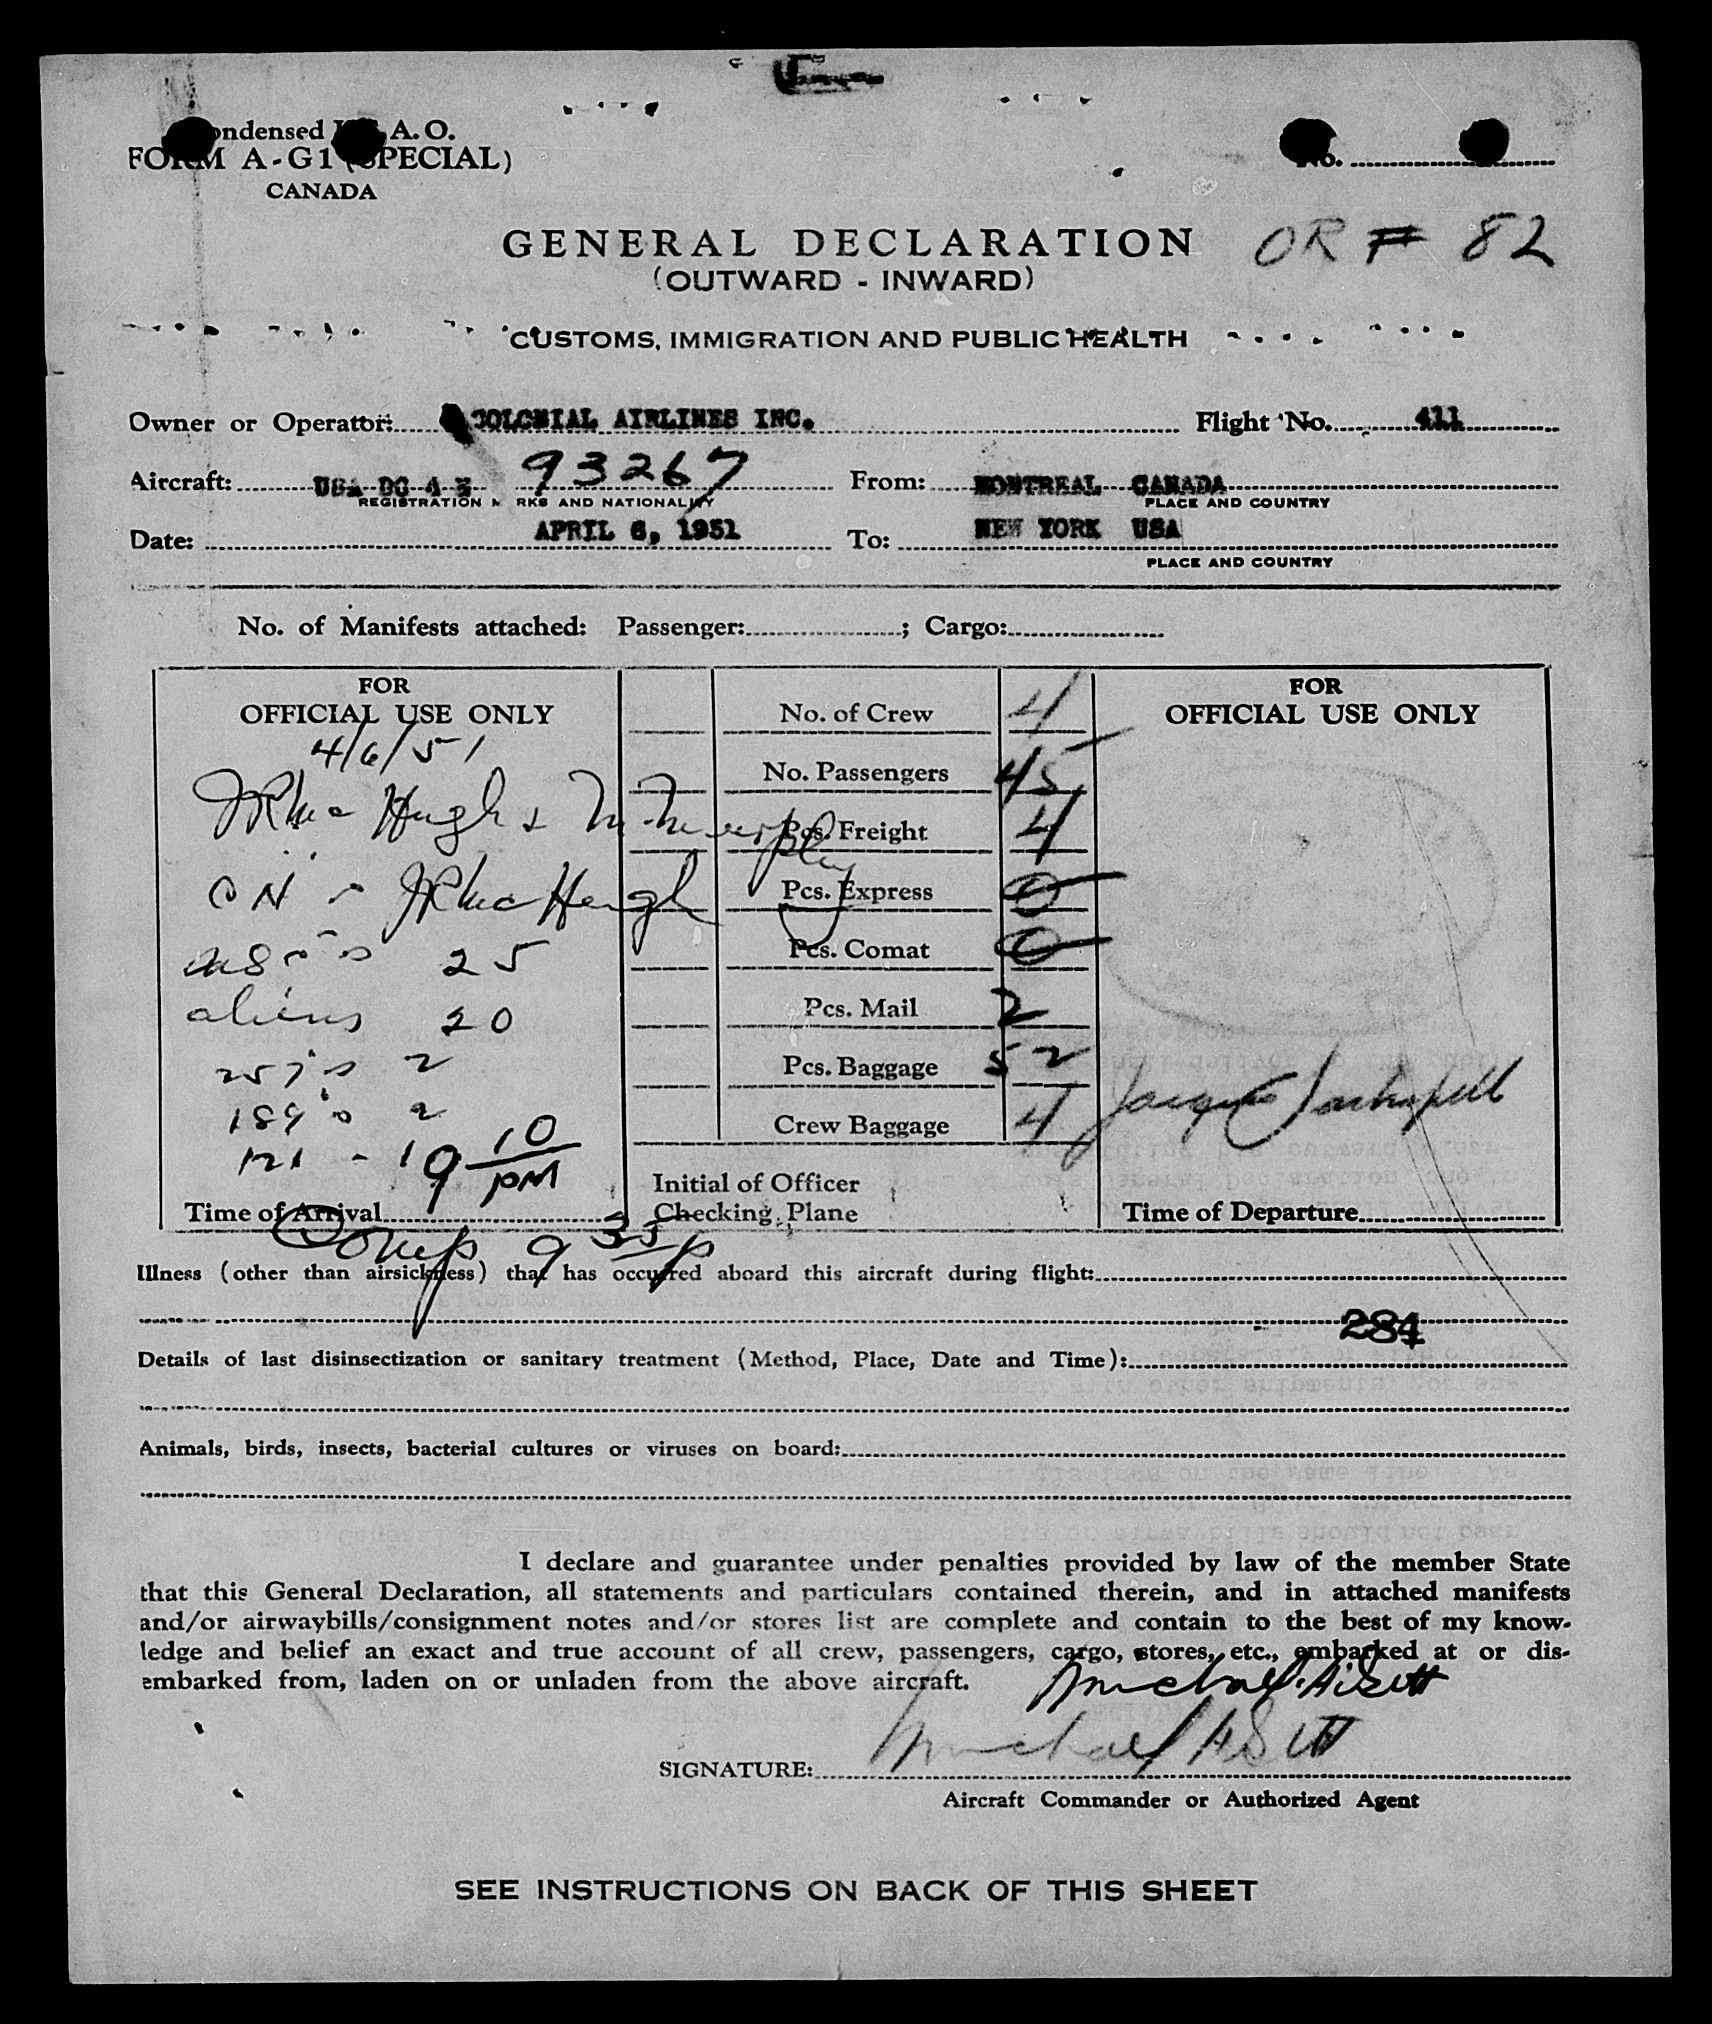 Condensed I.C.A.O. No.
FORM A-G1 (SPECIAL)
CANADA
GENERAL DECLARATION OR # 82
(OUTWARD - INWARD)
CUSTOMS, IMMIGRATION AND PUBLIC HEALTH
Owner or Operator: COLONIAL AIRLINES INC. Flight No. 411
Aircraft: USA DC 4 N 93267 From: MONTREAL CANADA
REGISTRATION MARKS AND NATIONALITY PLACE AND COUNTRY
Date: APRIL 6, 1951 To: NEW YORK USA
PLACE AND COUNTRY
No. of Manifests attached: Passenger: ; Cargo:
FOR
OFFICIAL USE ONLY
4/6/51
JR McHugh & M. Murphy
ON - JR McHugh
25
aliens 20
257's 2
189's 2
121 - 1
9 10 PM
Time of Arrival
Comp 9 35 p
No. of Crew 4
No. Passengers 45
Pcs. Freight 4
Pcs. Express 0
Pcs. Comat 0
Pcs. Mail 2
Pcs. Baggage 52
Crew Baggage 4
Initial of Officer
Checking Plane
FOR
OFFICIAL USE ONLY
Jacques
Time of Departure
Illness (other than airsickness) that has occurred aboard this aircraft during flight:
284
Details of last disinsectization or sanitary treatment (Method, Place, Date and Time):
Animals, birds, insects, bacterial cultures or viruses on board:
I declare and guarantee under penalties provided by law of the member State
that this General Declaration, all statements and particulars contained therein, and in attached manifests
and/or airwaybills/consignment notes and/or stores list are complete and contain to the best of my know-
ledge and belief an exact and true account of all crew, passengers, cargo, stores, etc., embarked at or dis-
embarked from, laden on or unladen from the above aircraft.
Michael
SIGNATURE: Michael
Aircraft Commander or Authorized Agent
SEE INSTRUCTIONS ON BACK OF THIS SHEET